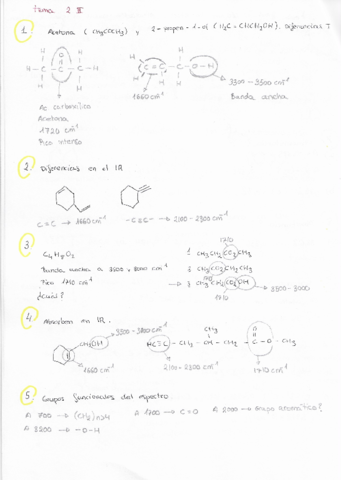 tema 2 II
1. Acetona (CH3COCH3) y 2-propen-1-ol (H2C=CHCH2OH). Diferencias?
H O H
H-C-C-C-H
H H
C=C-C-O-H
1660 cm-1
3300-3500 cm-1
Banda ancha
Ac carbonílico
Acetona
1720 cm-1
Pico intenso
2. Diferencias en el IR
C=C → 1660 cm-1
-C≡C- → 2100-2300 cm-1
3.
C4H8O2
Banda ancha a 3500 y 3000 cm-1
Pico 1710 cm-1
¿cuál?
1710
3000-3500
1710
4. Absorben en IR.
3300-3500 cm-1
CH2OH
1660 cm-1
CH3 O
HC≡C-CH2-CH-CH2-C-O-CH3
2100-2300 cm-1
1710 cm-1
5. Grupos funcionales del espectro
A 700 → (CH2)n>4
A 1700 → C=O
A 2000 → Grupo aromático?
A 3200 → -O-H